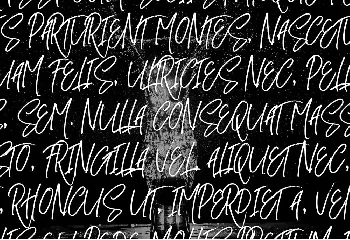 S PARTURIENT MONTES, NASCET
UAM FELIS, ULTRICIES NEC, PELL
, SEM. NULLA CONSEQUAT MASS
STO, FRINGILLA VEL, ALIQUET NEC,
, RHONCUS UT, IMPERDIET A, VE